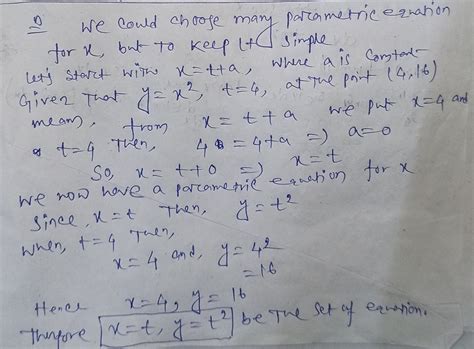 ① We could choose many parametric equation
for x, but to keep it simple
Let's start with x = t+a, where a is constant
Given that y = x², t=4, at the point (4,16)
mean, from x = t + a we put x=4 and
t=4 Then, 4 = 4+a => a=0
So, x = t+0 => x = t
We now have a parametric equation for x
Since, x=t Then, y = t²
When, t=4 Then,
x = 4 and, y = 4²
= 16
Hence x=4, y = 16
Therefore x=t, y=t² be the set of equation.